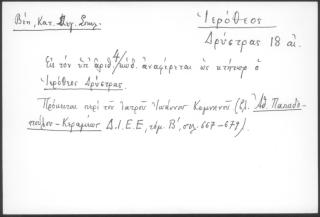 Ἱερόθεος
Βέη, Κατ. Μεγ. Σπηλ.
Δρύστρας 18 αἰ.
Εἰς τὸν ὑπ' ἀριθ. 4/κώδ. ἀναφέρεται ὡς κτήτωρ ὁ
Ἱερόθεος Δρύστρας.
Πρόκειται περὶ τοῦ ἰατροῦ Ἰωάννου Κομνηνοῦ (βλ. Ἀθ. Παπαδο-
πούλου-Κεραμέως Δ.Ι.Ε.Ε, τόμ. Β', σελ. 667-679).